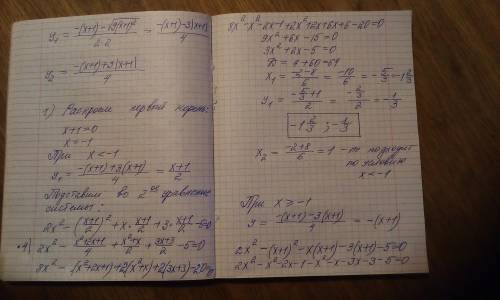 y₁ = (-(x+1) - √(9(x+1)²))/(2·2) = (-(x+1) - 3|x+1|)/4
y₂ = (-(x+1) + 3|x+1|)/4
1) Раскроем первый корень:
x+1=0
x=-1
При x < -1
y₁ = (-(x+1)+3(x+1))/4 = (x+1)/2
Подставим во 2ое уравнение
системы:
2x² - ((x+1)/2)² + x·(x+1)/2 + 3·(x+1)/2 - 5=0
2x² - (x²+2x+1)/4 + (x²+x)/2 + (3x+3)/2 - 5=0 |·4
8x² - (x²+2x+1)+2(x²+x)+2(3x+3)-20=0
8x²-x²-2x-1+2x²+2x+6x+6-20=0
9x²+6x-15=0
3x²+2x-5=0
D = 4+60=64
x₁ = (-2-8)/6 = -10/6 = -5/3 = -1 2/3
y₁ = (-5/3+1)/2 = (-2/3)/2 = -1/3
-1 2/3 ; -1/3
x₂ = (-2+8)/6 = 1 - не подходит
по условию
x < -1
При x > -1
y = (-(x+1)-3(x+1))/4 = -(x+1)
2x² - (x+1)² - x(x+1) - 3(x+1) - 5=0
2x² - x² - 2x - 1 - x² - x - 3x - 3 - 5=0